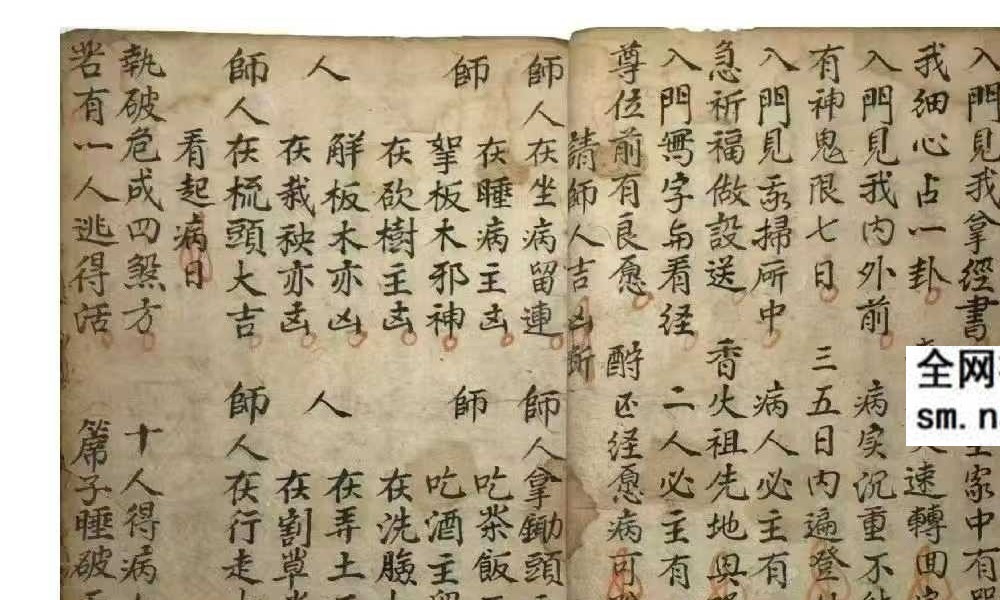 入門見我拿經書
我細心占一卦 速轉回
入門見我内外前 病实沉重不
有神鬼限七日 三五日内遍登
入門見永掃所中 病人必主有
急祈福做設送 香火祖先地與
入門寫字与看经 二人必主有
尊位前有良愿 酧还经愿病可
請師人吉凶断
師人在坐病留連 師人拿鋤頭
師 在睡病主凶 師 吃茶飯
拏板木邪神 吃酒主
在砍樹主凶 在洗臉
人 解板木亦凶 人 在弄土
在栽秧亦凶 在割草
師人在梳頭大吉 師人在行走
看起病日
執破危成四煞方 十人得病
若有一人逃得活 篇子睡破
全网
sm.n